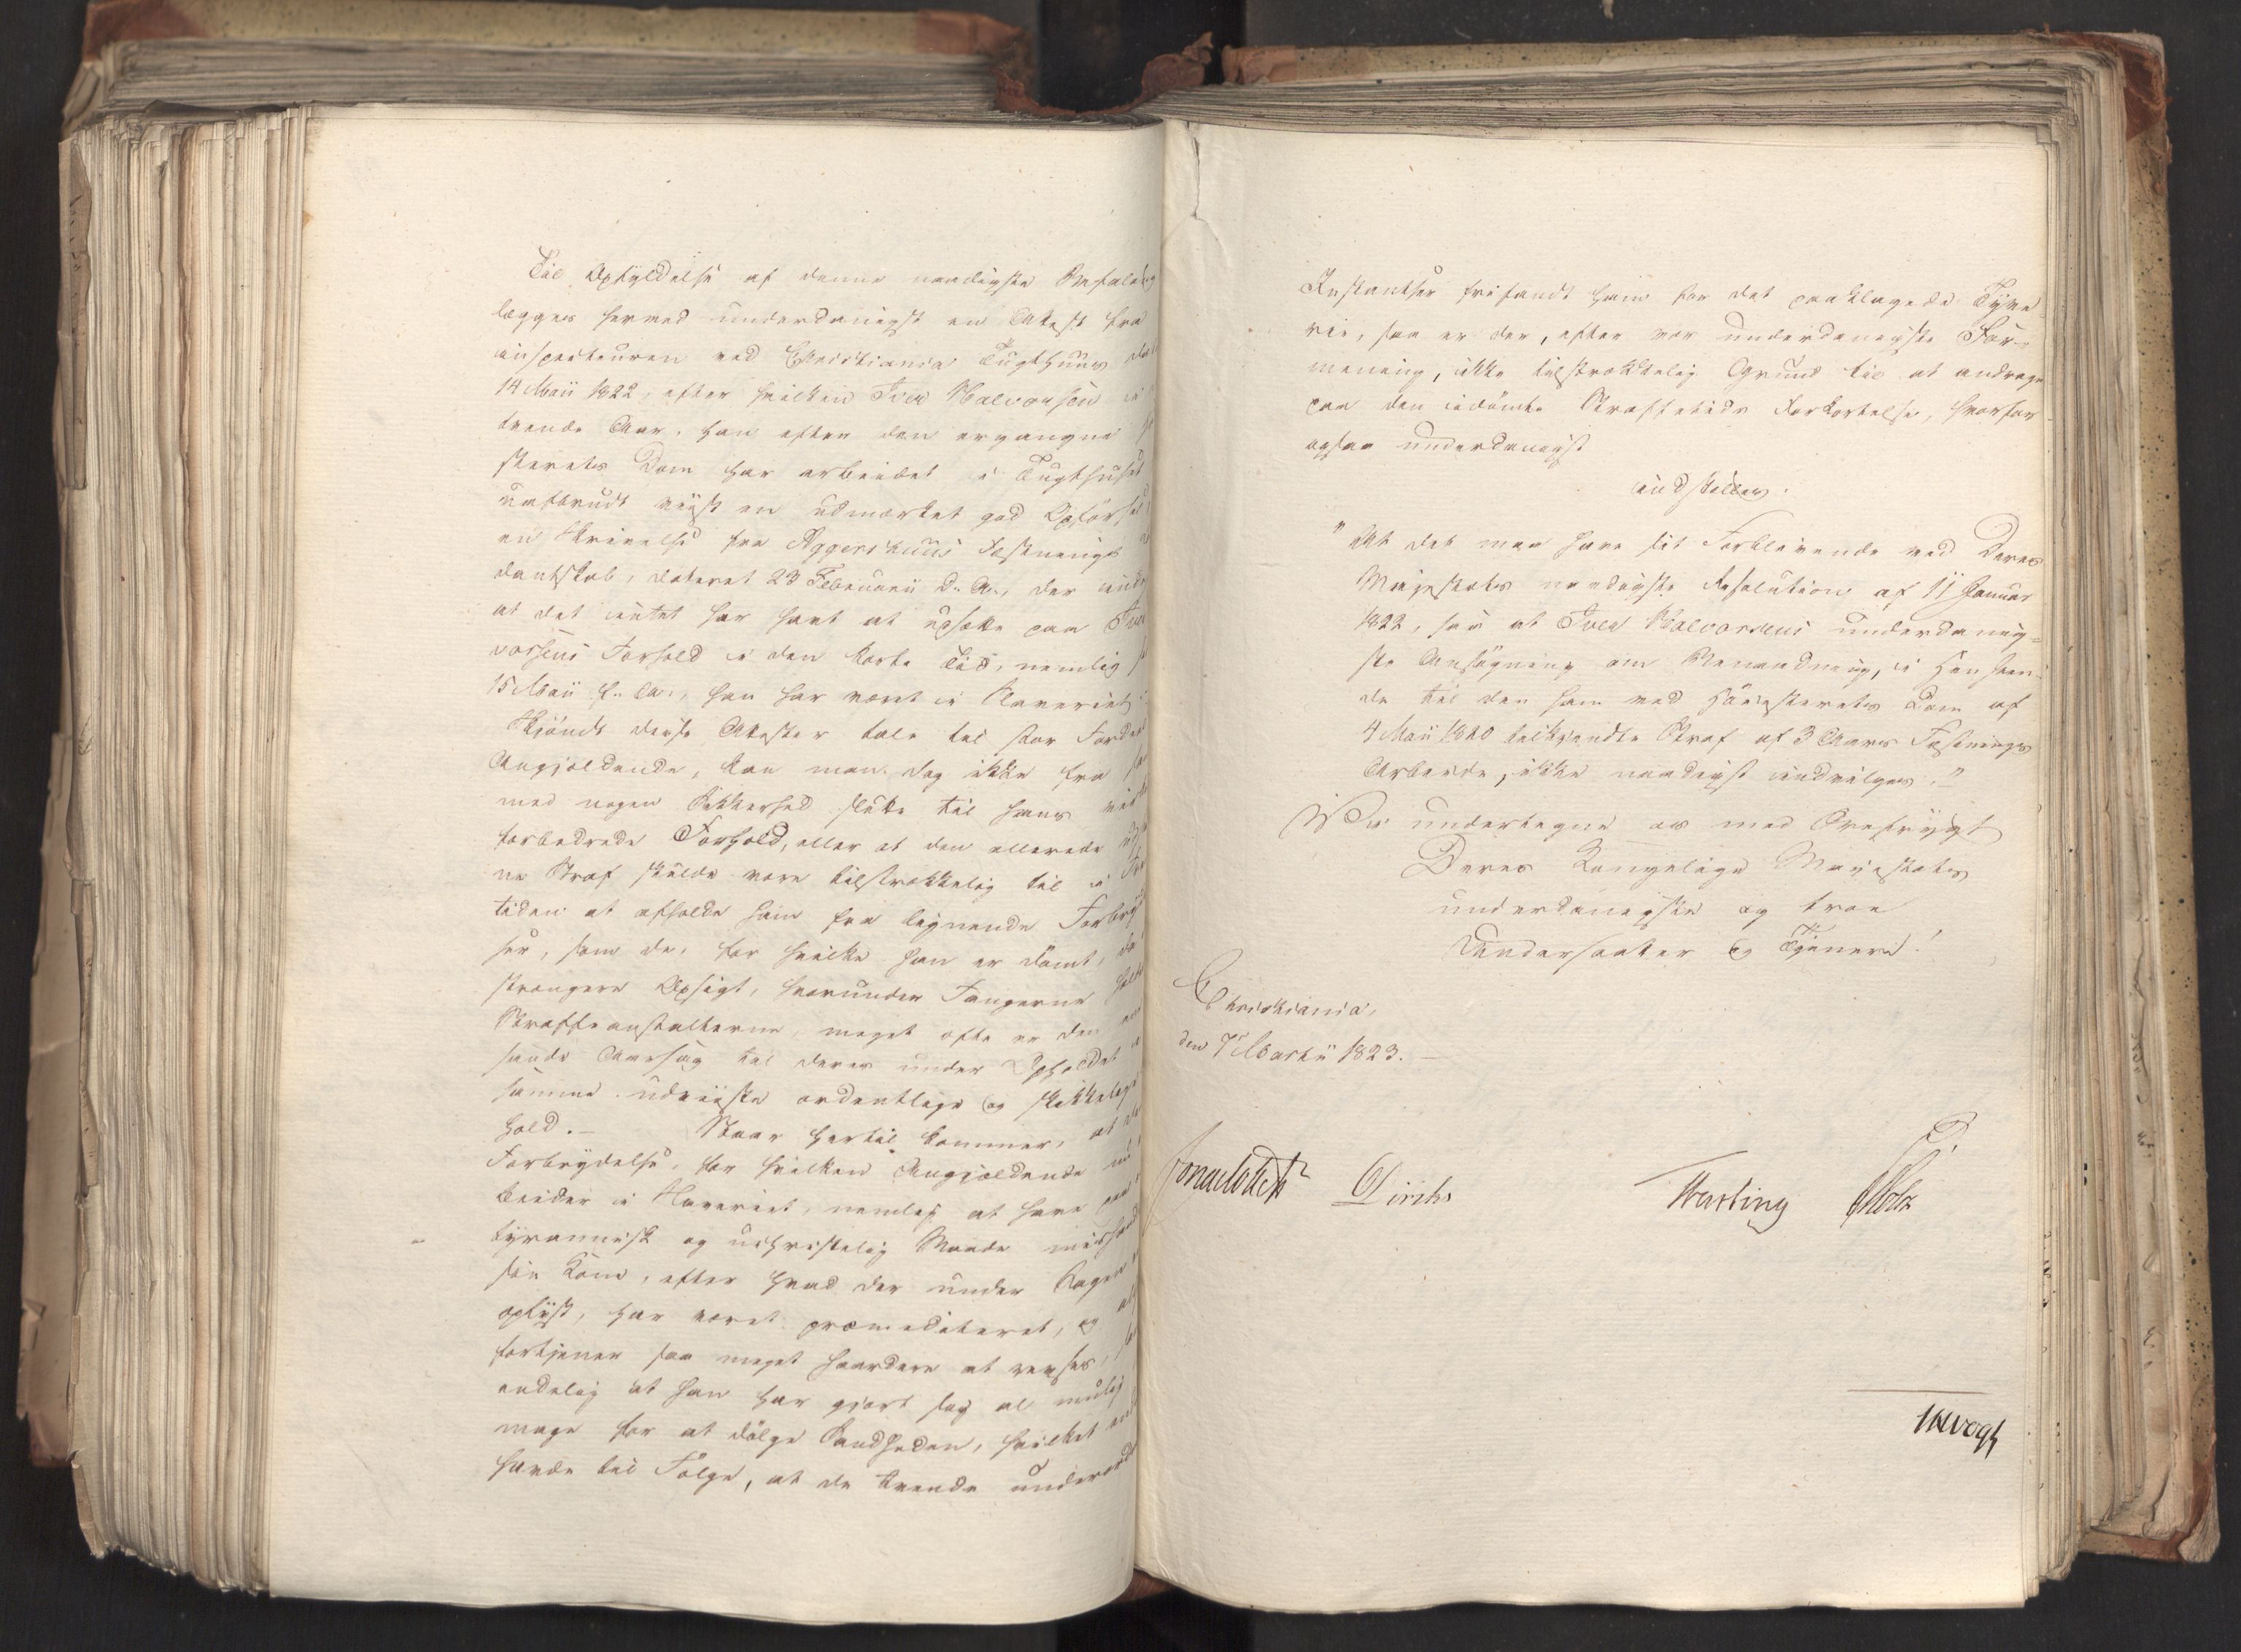 Til Opfyldelse af denne naadigste Befaling
lægges hermed underdanigst en Attest fra
inspecteuren ved Christiania Tugthuus
14 Maii 1822, efter hvilken Iver Halvorsen i
tvende Aar, han efter den ergangne
sterets Dom har arbeidet i Tugthuset
uafbrudt viist en udmærket god Opførsel
en Skrivelse fra Aggershuus Fæstnings
dantskab, dateret 23 Februarii d. A., der
at det intet har havt at udsætte paa Iver
vorsens Forhold i den korte Tid, nemlig
15 Maii f. A., han har været i Slaveriet
Skjøndt disse Attester tale til stor Fordel
Angjeldende, kan man dog ikke fra
med nogen Sikkerhed slutte til hans
forbedrede Forhold, eller at den allerede
ne Straf skulde være tilstrækkelig til i
tiden at afholde ham fra lignende
ser, som de, for hvilke han er dømt, da
strengere Opsigt, hvorunder Fangerne
Straffeanstalterne, meget ofte er den
sande Aarsag til deres under Opholdet
samme udviiste ordentlige og skikkelige
hold.— Naar hertil kommer, at
Forbrydelse, for hvilken Angjældende
beider i Slaveriet, nemlig at have paa
tyrannisk og uchristelig Maade
sin Kone, efter hvad der under Sagen
oplyst, har været præmediteret, og
fortjener saa meget haardere at revses,
endelig at han har gjort sig al mulig
mage for at dølge Sandheden, hvilket
havde til Følge, at de tvende
Instantser frifandt ham for det paaklagede Tyve
rie, saa er der, efter vor underdanigste For-
mening, ikke tilstrækkelig Grund til at andrage
paa den idømte Straffetids Forkortelse, hvorfor
ogsaa underdanigst
indstilles:
"At det maa have sit Forblivende ved Deres
Majestæts naadigste Resolution af 11 Januar
1822, saa at Iver Halvorsens underdanig-
ste Ansøgning om Benaadning, i Henseen-
de til den ham ved Høiesterets Dom af
4 Maii 1820 tilkjendte Straf af 3 Aars Fæstnings
Arbeide, ikke naadigst indvilges."
Vi undertegne os med Ærefrygt
Deres Kongelige Majestæts
underdanigste og troe
Undersaatter og Tjenere!
Christiania,
den 7 Martii 1823.
Jonas Collett Diriks Motzfeldt